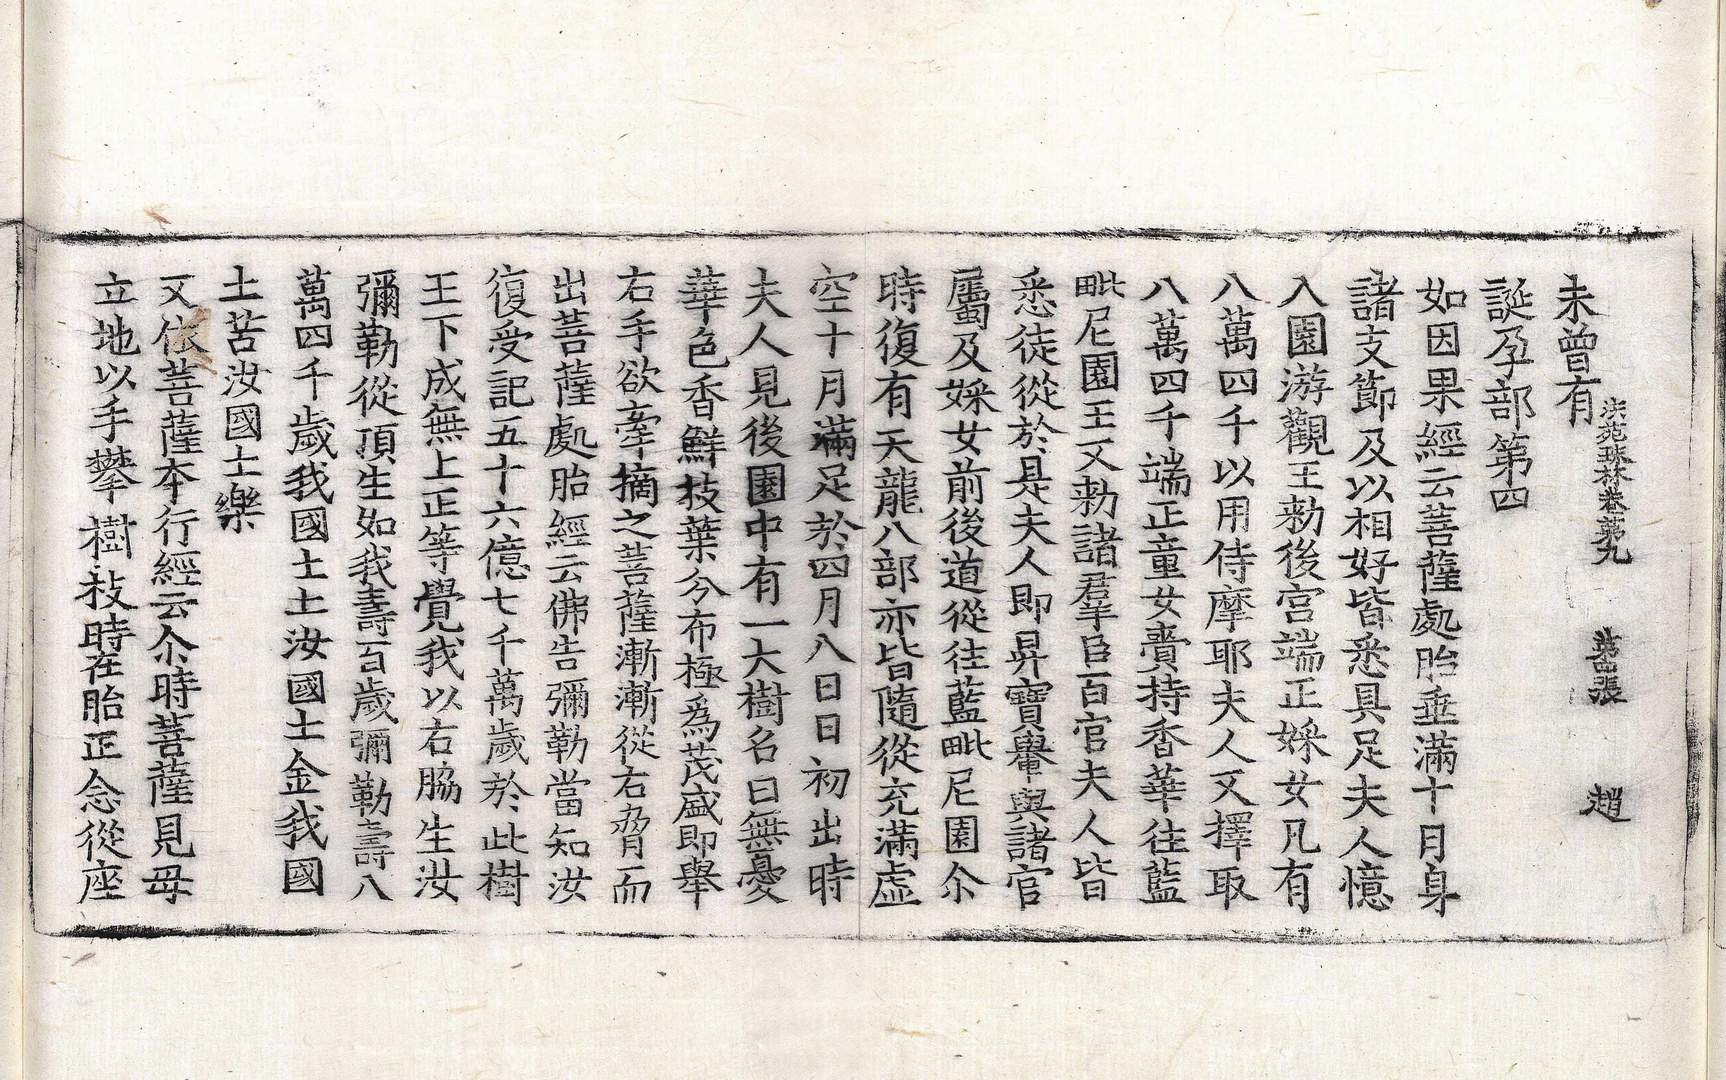 未曾有
法苑珠林卷第九 張 趙
誕孕部第四
如因果經云菩薩處胎垂滿十月身
諸支節及以相好皆悉具足夫人憶
入園游觀王勑後宮端正婇女凡有
八萬四千以用侍摩耶夫人又擇取
八萬四千端正童女賷持香華往藍
毗尼園王又勑諸羣臣百官夫人皆
悉徒從於是夫人即昇寶轝與諸官
屬及婇女前後道從往藍毗尼園尒
時復有天龍八部亦皆隨從充滿虛
空十月滿足於四月八日日初出時
夫人見後園中有一大樹名曰無憂
華色香鮮枝葉分布極為茂盛即舉
右手欲牽摘之菩薩漸漸從右脅而
出菩薩處胎經云佛告彌勒當知汝
復受記五十六億七千萬歲於此樹
王下成無上正等覺我以右脇生汝
彌勒從頂生如我壽百歲彌勒壽八
萬四千歲我國土土汝國土金我國
土苦汝國土樂
又依菩薩本行經云尒時菩薩見母
立地以手攀樹枝時在胎正念從座